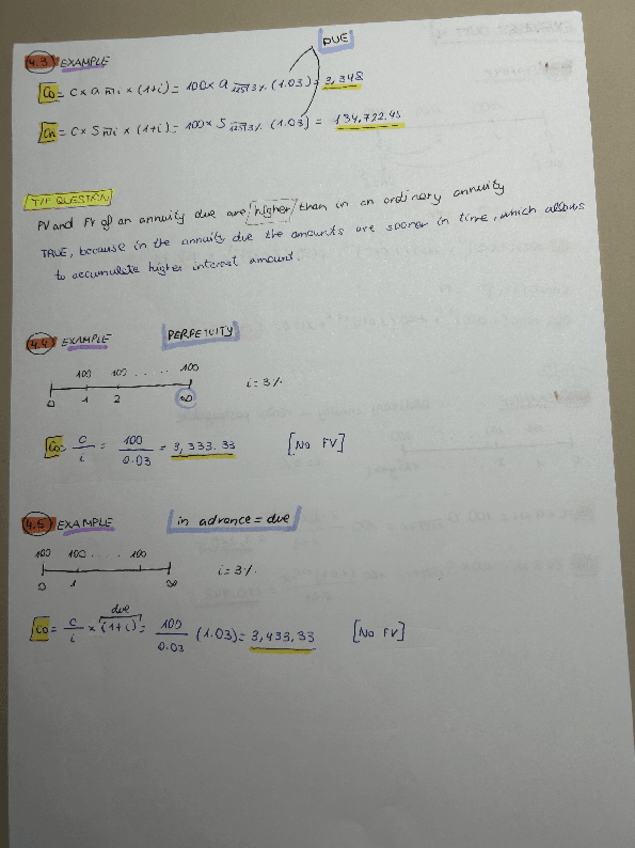 DUE
4.3 EXAMPLE
C0 = C × a n̅ i × (1+i) = 100 × a 125 3% · (1.03) = 3,348
Cn = C × S n̅ i × (1+i) = 100 × S 125 3% (1.03) = 134,722.45
T/F QUESTION
PV and FV of an annuity due are higher than in an ordinary annuity
TRUE, because in the annuity due the amounts are sooner in time, which allows
to accumulate higher interest amount.
4.4 EXAMPLE PERPETUITY
100 100 . . . . . 100
0 1 2 ∞ i = 3%
C0 = C/i = 100/0.03 = 3,333.33 [No FV]
4.5 EXAMPLE in advance = due
100 100 . . . . 100
0 1 ∞ i = 3%
due
C0 = C/i × (1+i) = 100/0.03 (1.03) = 3,433.33 [No FV]